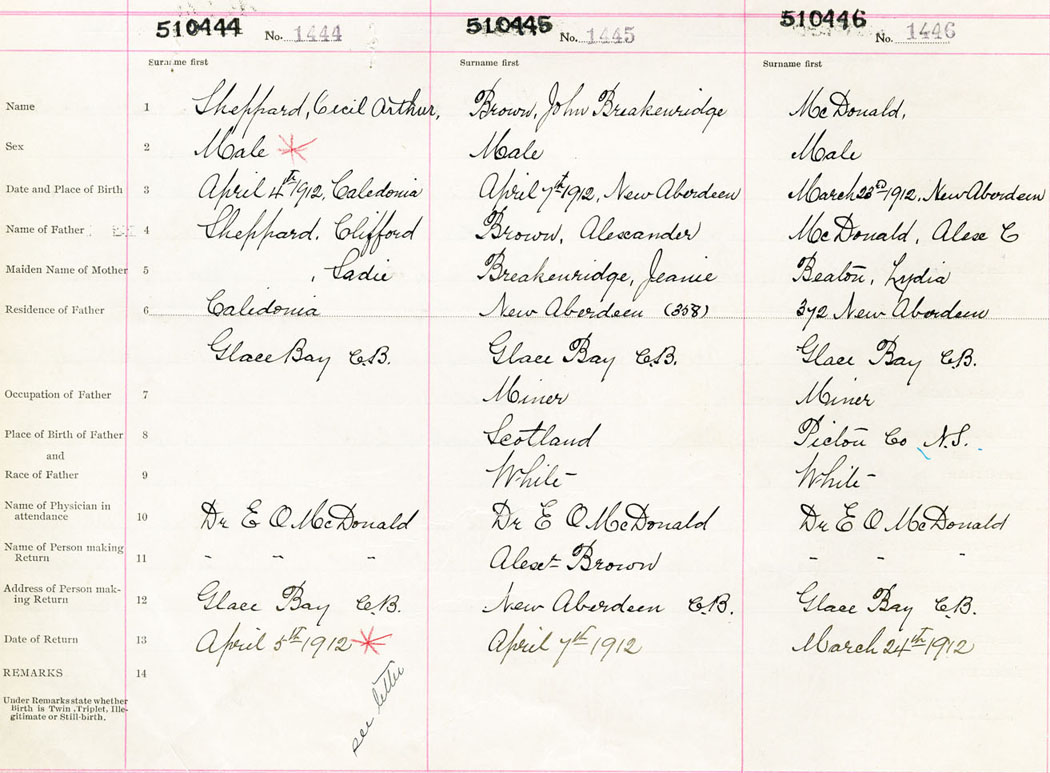 510444 No. 1444 510445 No. 1445 510446 No. 1446
Surname first Surname first Surname first
Name 1 Sheppard, Cecil Arthur, Brown, John Breakenridge McDonald,
Sex 2 Male Male Male
Date and Place of Birth 3 April 4th 1912, Caledonia April 7th 1912, New Aberdeen March 23rd 1912, New Aberdeen
Name of Father 4 Sheppard, Clifford Brown, Alexander McDonald, Alex C
Maiden Name of Mother 5 , Sadie Breakenridge, Jeanie Beaton, Lydia
Residence of Father 6 Calidonia New Aberdeen (358) 372 New Aberdeen
Glace Bay C.B. Glace Bay C.B. Glace Bay C.B.
Occupation of Father 7 Miner Miner
Place of Birth of Father 8 Scotland Pictou Co N.S.
and
Race of Father 9 White White
Name of Physician in
attendance 10 Dr E O McDonald Dr E O McDonald Dr E O McDonald
Name of Person making
Return 11 - - - Alexr Brown - - -
Address of Person mak-
ing Return 12 Glace Bay C.B. New Aberdeen C.B. Glace Bay C.B.
Date of Return 13 April 5th 1912 April 7th 1912 March 24th 1912
REMARKS 14
see letter
Under Remarks state whether
Birth is Twin, Triplet, Ille-
gitimate or Still-birth.